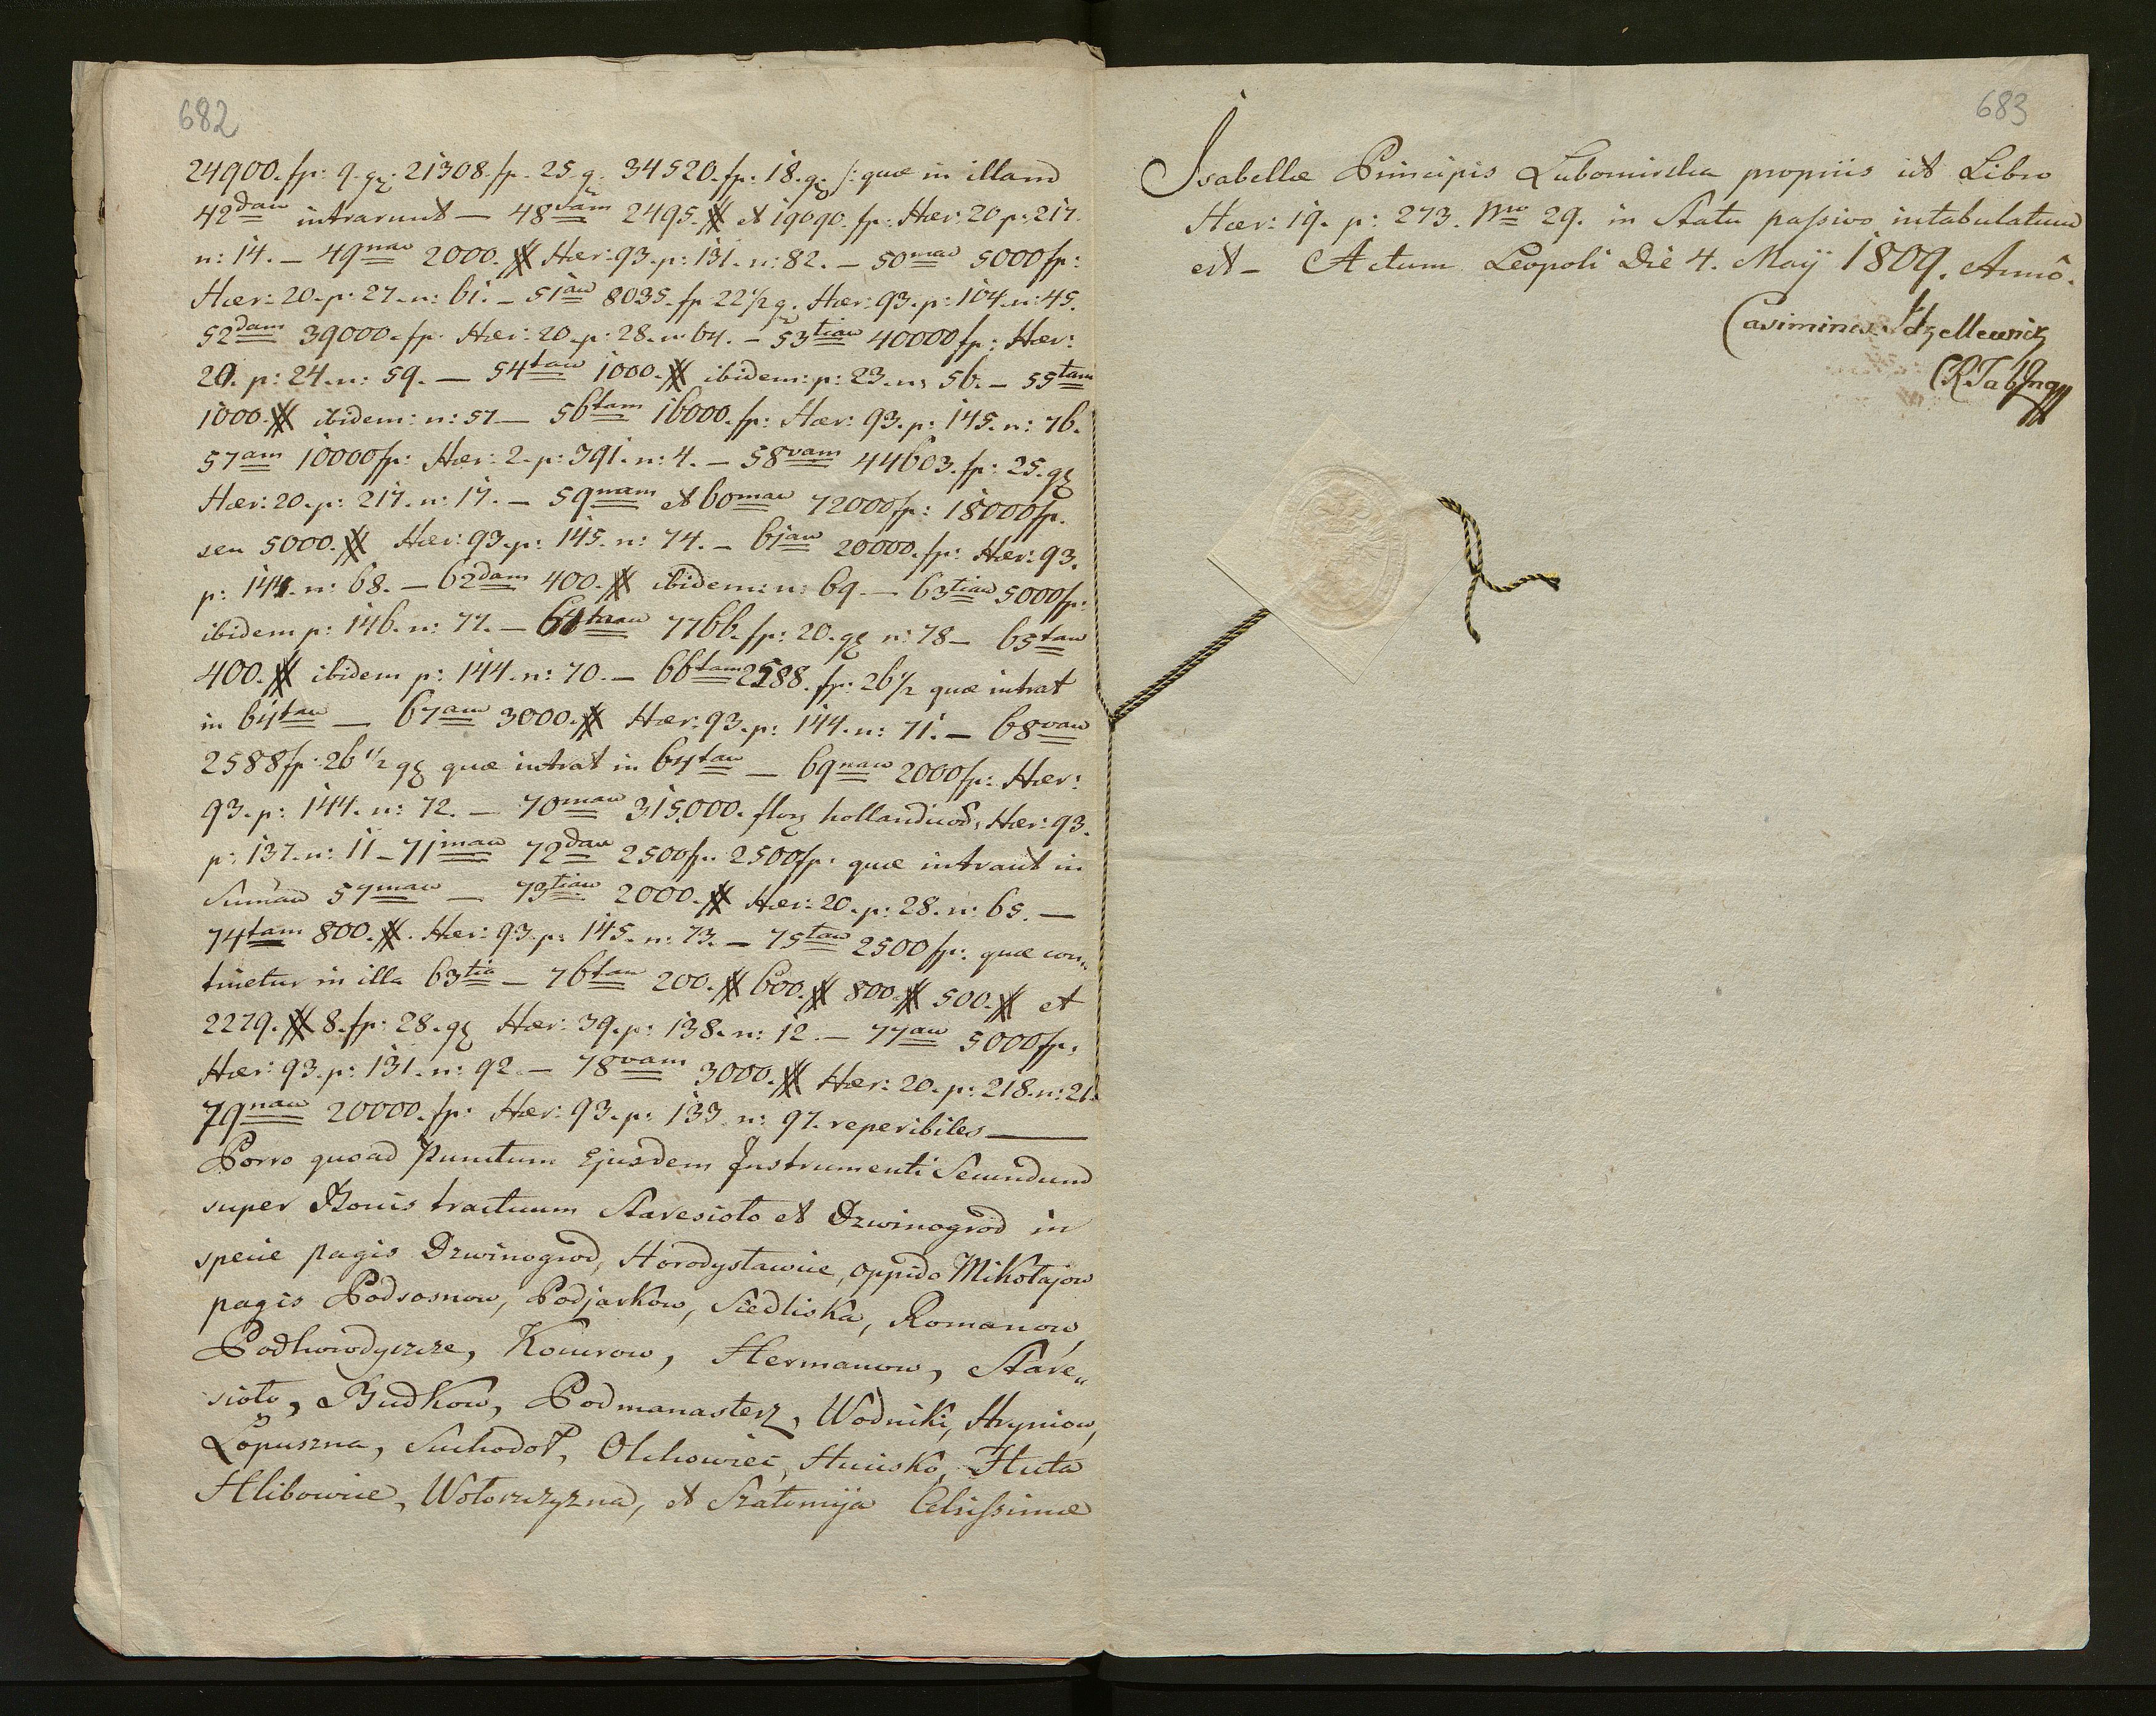 682
24900. fp: 9. gz. 21308. fp. 25. g. 34520. fp: 18. gz /: quæ in illam
42dam intrarunt — 48vam 2495. # et 19090. fp: Hær: 20 p: 217.
n: 14. — 49nam 2000. # Hær: 93. p: 131. n: 82. — 50mam 5000 fp:
Hær: 20. p: 27. n: 61. — 51am 8035. fp 22 1/2 g. Hær: 93. p: 104. n: 45.
52dam 39000. fp. Hær: 20. p: 28. n: 64. — 53tiam 40000 fp: Hær:
20. p: 24. n: 59. — 54tam 1000. # ibidem: p: 23. n: 56. — 55tam
1000. # ibidem: n: 57 — 56tam 16000. fp: Hær: 93. p: 145. n: 76.
57am 10000 fp: Hær: 2. p: 391. n: 4. — 58vam 44603. fp: 25. gz
Hær: 20. p: 217. n: 17. — 59nam et 60mam 72000 fp: 18000 fp.
seu 5000. # Hær: 93. p: 145. n: 74. — 61am 20000. fp: Hær: 93.
p: 144. n: 68. — 62dam 400. # ibidem: n: 69 — 63tiam 5000 fp:
ibidem p: 146. n: 77. — 64tam 7766. fp: 20. gz n: 78 — 65tam
400. # ibidem p: 144. n: 70. — 66tam 2588. fp: 26 1/2 quæ intrat
in 64tam — 67am 3000. # Hær: 93. p: 144. n: 71. — 68vam
2588 fp: 26 1/2 gz quæ intrat in 64tam — 69nam 2000 fp: Hær:
93. p: 144. n: 72. — 70mam 315000. florz hollandicoð. Hær: 93.
p: 137. n: 11 — 71mam 72dam 2500 fp. 2500 fp: quæ intrant in
Sumam 57mam — 73tiam 2000. # Hær: 20. p: 28. n: 65. —
74tam 800. #. Hær: 93. p: 145. n: 73. — 75tam 2500 fp: quæ con„
tinetur in illa 63tia — 76tam 200. # 600. # 800. # 500. # et
2279. # 8. fp: 28. gz Hær: 39. p: 138. n: 12. — 77am 5000 fp:
Hær: 93. p: 131. n: 92. — 78vam 3000. # Hær: 20. p: 218. n: 21.
79nam 20000. fp: Hær: 93. p: 133. n: 97. reperibiles —
Porro quoad Punctum Ejusdem Instrumenti Secundum
super Bonis tractuum Staresioło et Dzwinogrod in
specie pagis Dzwinogrod, Horodysławice, oppido Mikołajow
pagis Podsosnow, Podjarkow, Siedliska, Romanow,
Podhorodyszcze, Kocurow, Hermanow, Stare„
sioło, Budkow, Podmanasterz, Wodniki, Hryniow,
Łopuszna, Suchodoł, Olchowiec, Hucisko, Huta
Hlibowice, Wołoszczyzna, et Szołomyja Celsissimæ
683
Isabellæ Principis Lubomirska propriis ut Libro
Hær: 19. p: 273. Nro 29. in Statu passivo intabulatum
est — Actum Leopoli Die 4. Maÿ 1809. Annô.
Casimirus